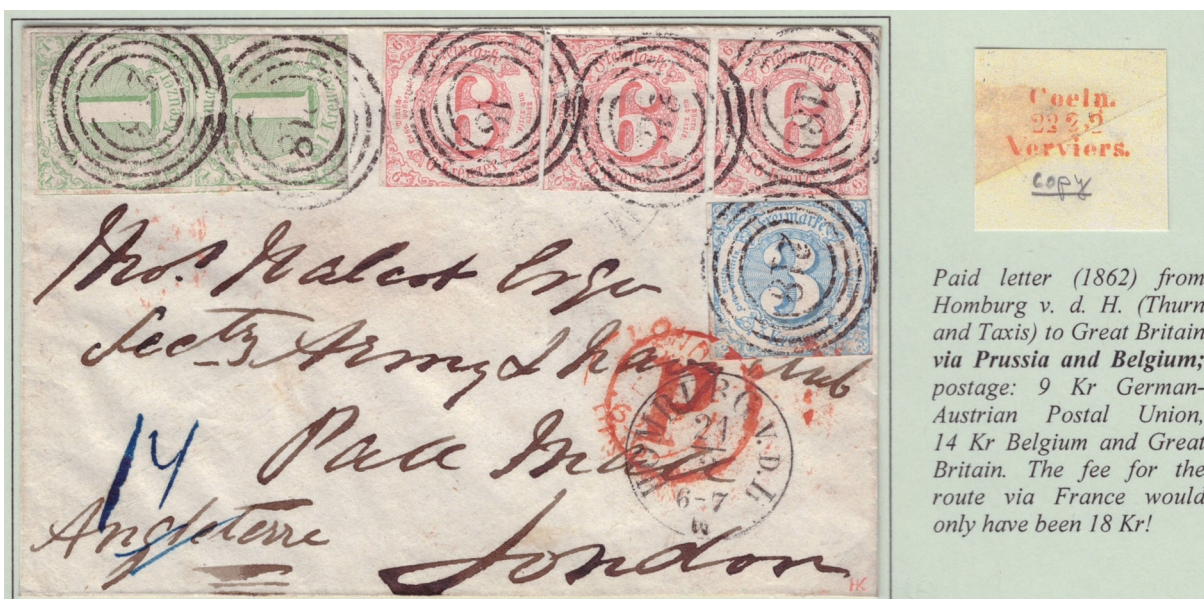 Freimarke
Freimarke
Freimarke
1 1 6 6 6
Kreuzer
318
Freimarke
3
Thos. Malcot Esqr
Secty Army & Navy Club
Pall Mall
London
Angleterre
14
HOMBURG V.D.H.
21
6-7
HK
Coeln.
22 2 2
Verviers.
copy
Paid letter (1862) from
Homburg v. d. H. (Thurn
and Taxis) to Great Britain
via Prussia and Belgium;
postage: 9 Kr German-
Austrian Postal Union,
14 Kr Belgium and Great
Britain. The fee for the
route via France would
only have been 18 Kr!